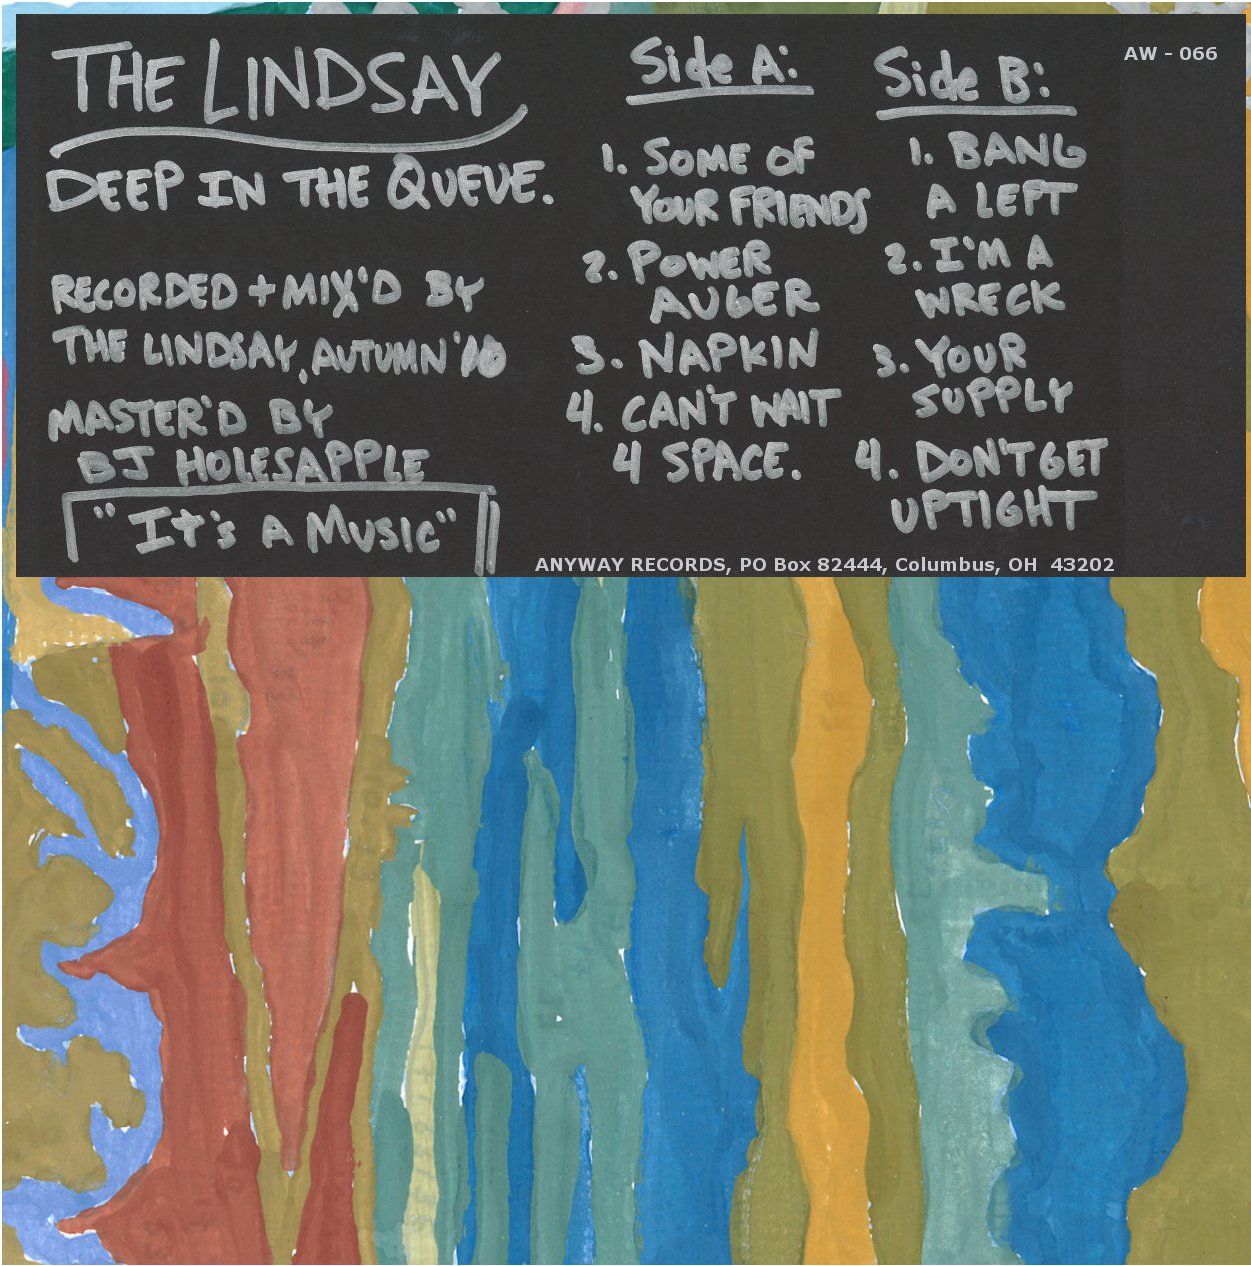 THE LINDSAY
DEEP IN THE QUEUE.
RECORDED + MIX'D BY
THE LINDSAY, AUTUMN '10
MASTER'D BY
BJ HOLESAPPLE
"It's A MUSIC"
Side A:
1. SOME OF
YOUR FRIENDS
2. POWER
AUGER
3. NAPKIN
4. CAN'T WAIT
4 SPACE.
Side B:
1. BANG
A LEFT
2. I'M A
WRECK
3. YOUR
SUPPLY
4. DON'T GET
UPTIGHT
AW - 066
ANYWAY RECORDS, PO Box 82444, Columbus, OH 43202